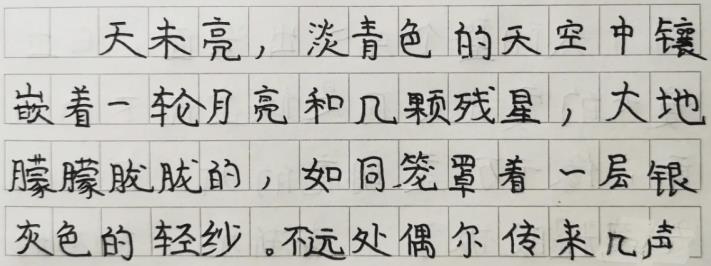 天未亮，淡青色的天空中镶
嵌着一轮月亮和几颗残星，大地
朦朦胧胧的，如同笼罩着一层银
灰色的轻纱。不远处偶尔传来几声